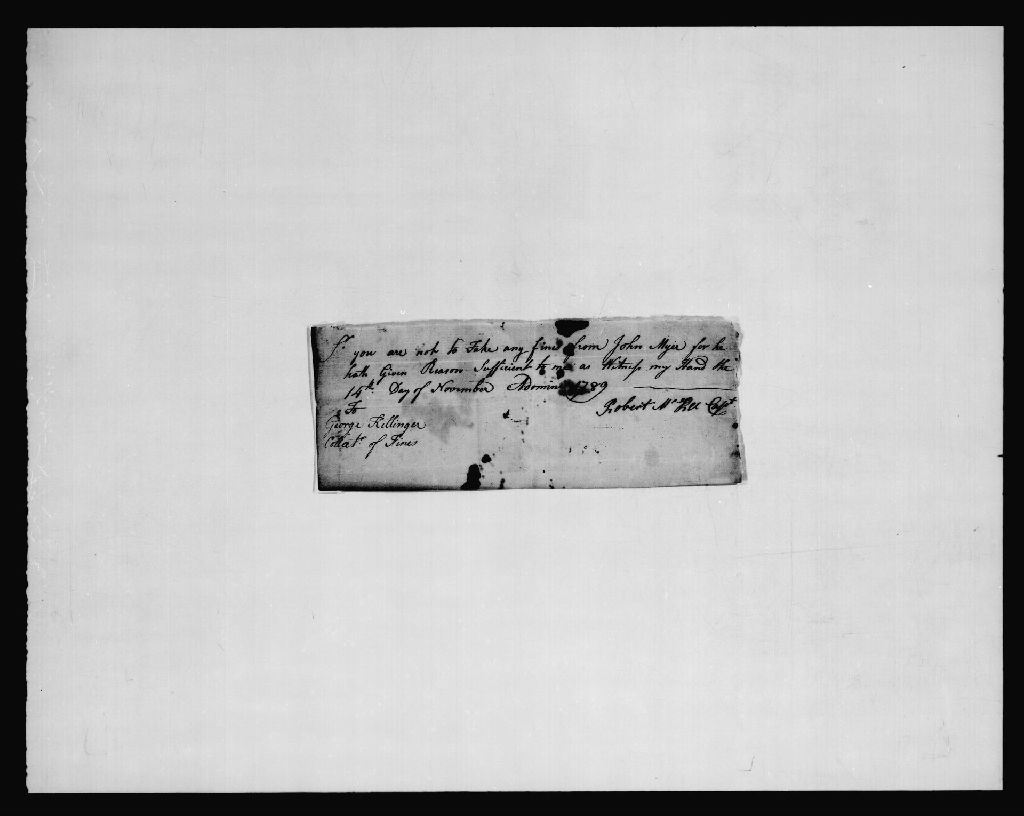 Sr. you are not to Take any fine from John Myer for he
hath Given Reason Sufficient to me as Witness my Hand the
14th. Day of November ADomini 1789
Robert Mc Capt
To
George Killinger
Collatr. of Fines